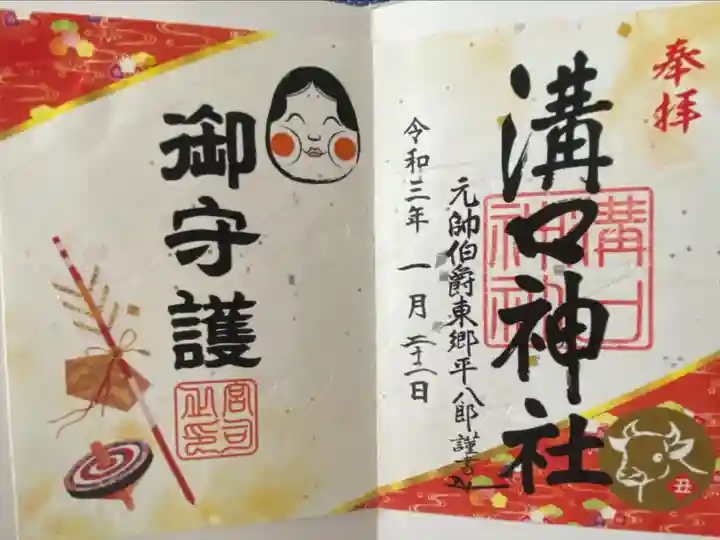 奉拝
溝口神社
溝口
神社
元帥伯爵東郷平八郎謹書
令和三年 一月 二十二日
丑
御守護
宮司
之印